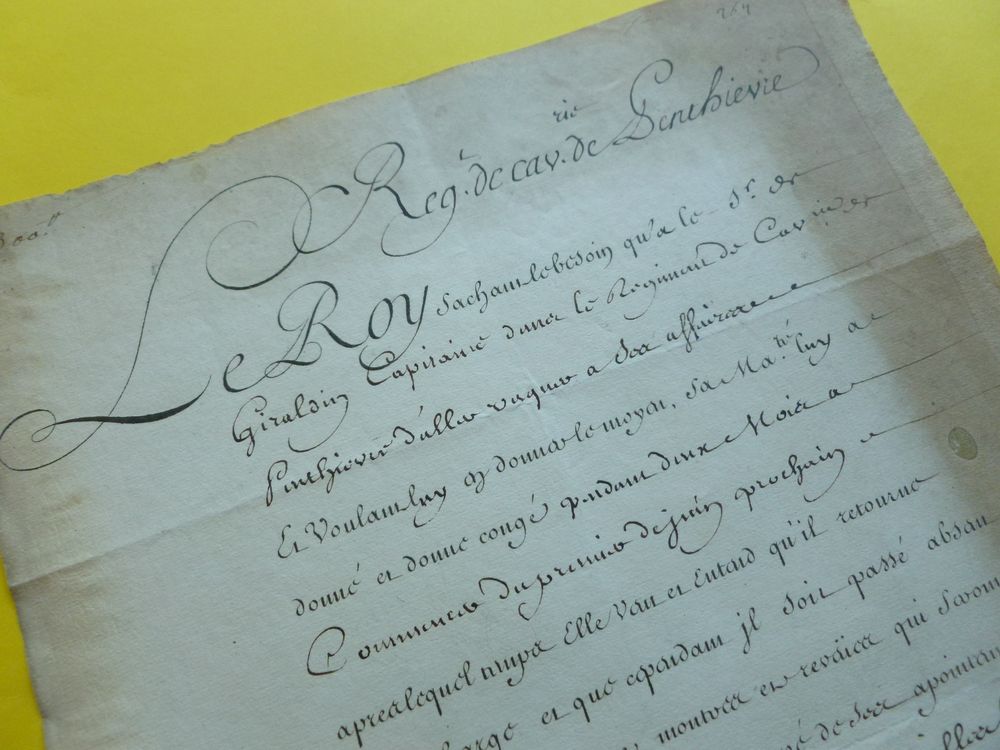 264
Reg.t de cav.rie de Penthievre
Le Roy sachant le besoin qu'a le S.r de
Giraldin Capitaine dans le Regiment de Cav.rie de
Penthievre d'aller vaquer a ses affaires
Et Voulant luy en donner le moyen, Sa Ma.té luy a
donné et donne congé pendant deux Mois a
Commencer du premier de juin prochain
apres lequel temps Elle Veut et Entend qu'il retourne
charge et que cependant jl soit passé absent
montres et reveües qui seront
de ses apointem